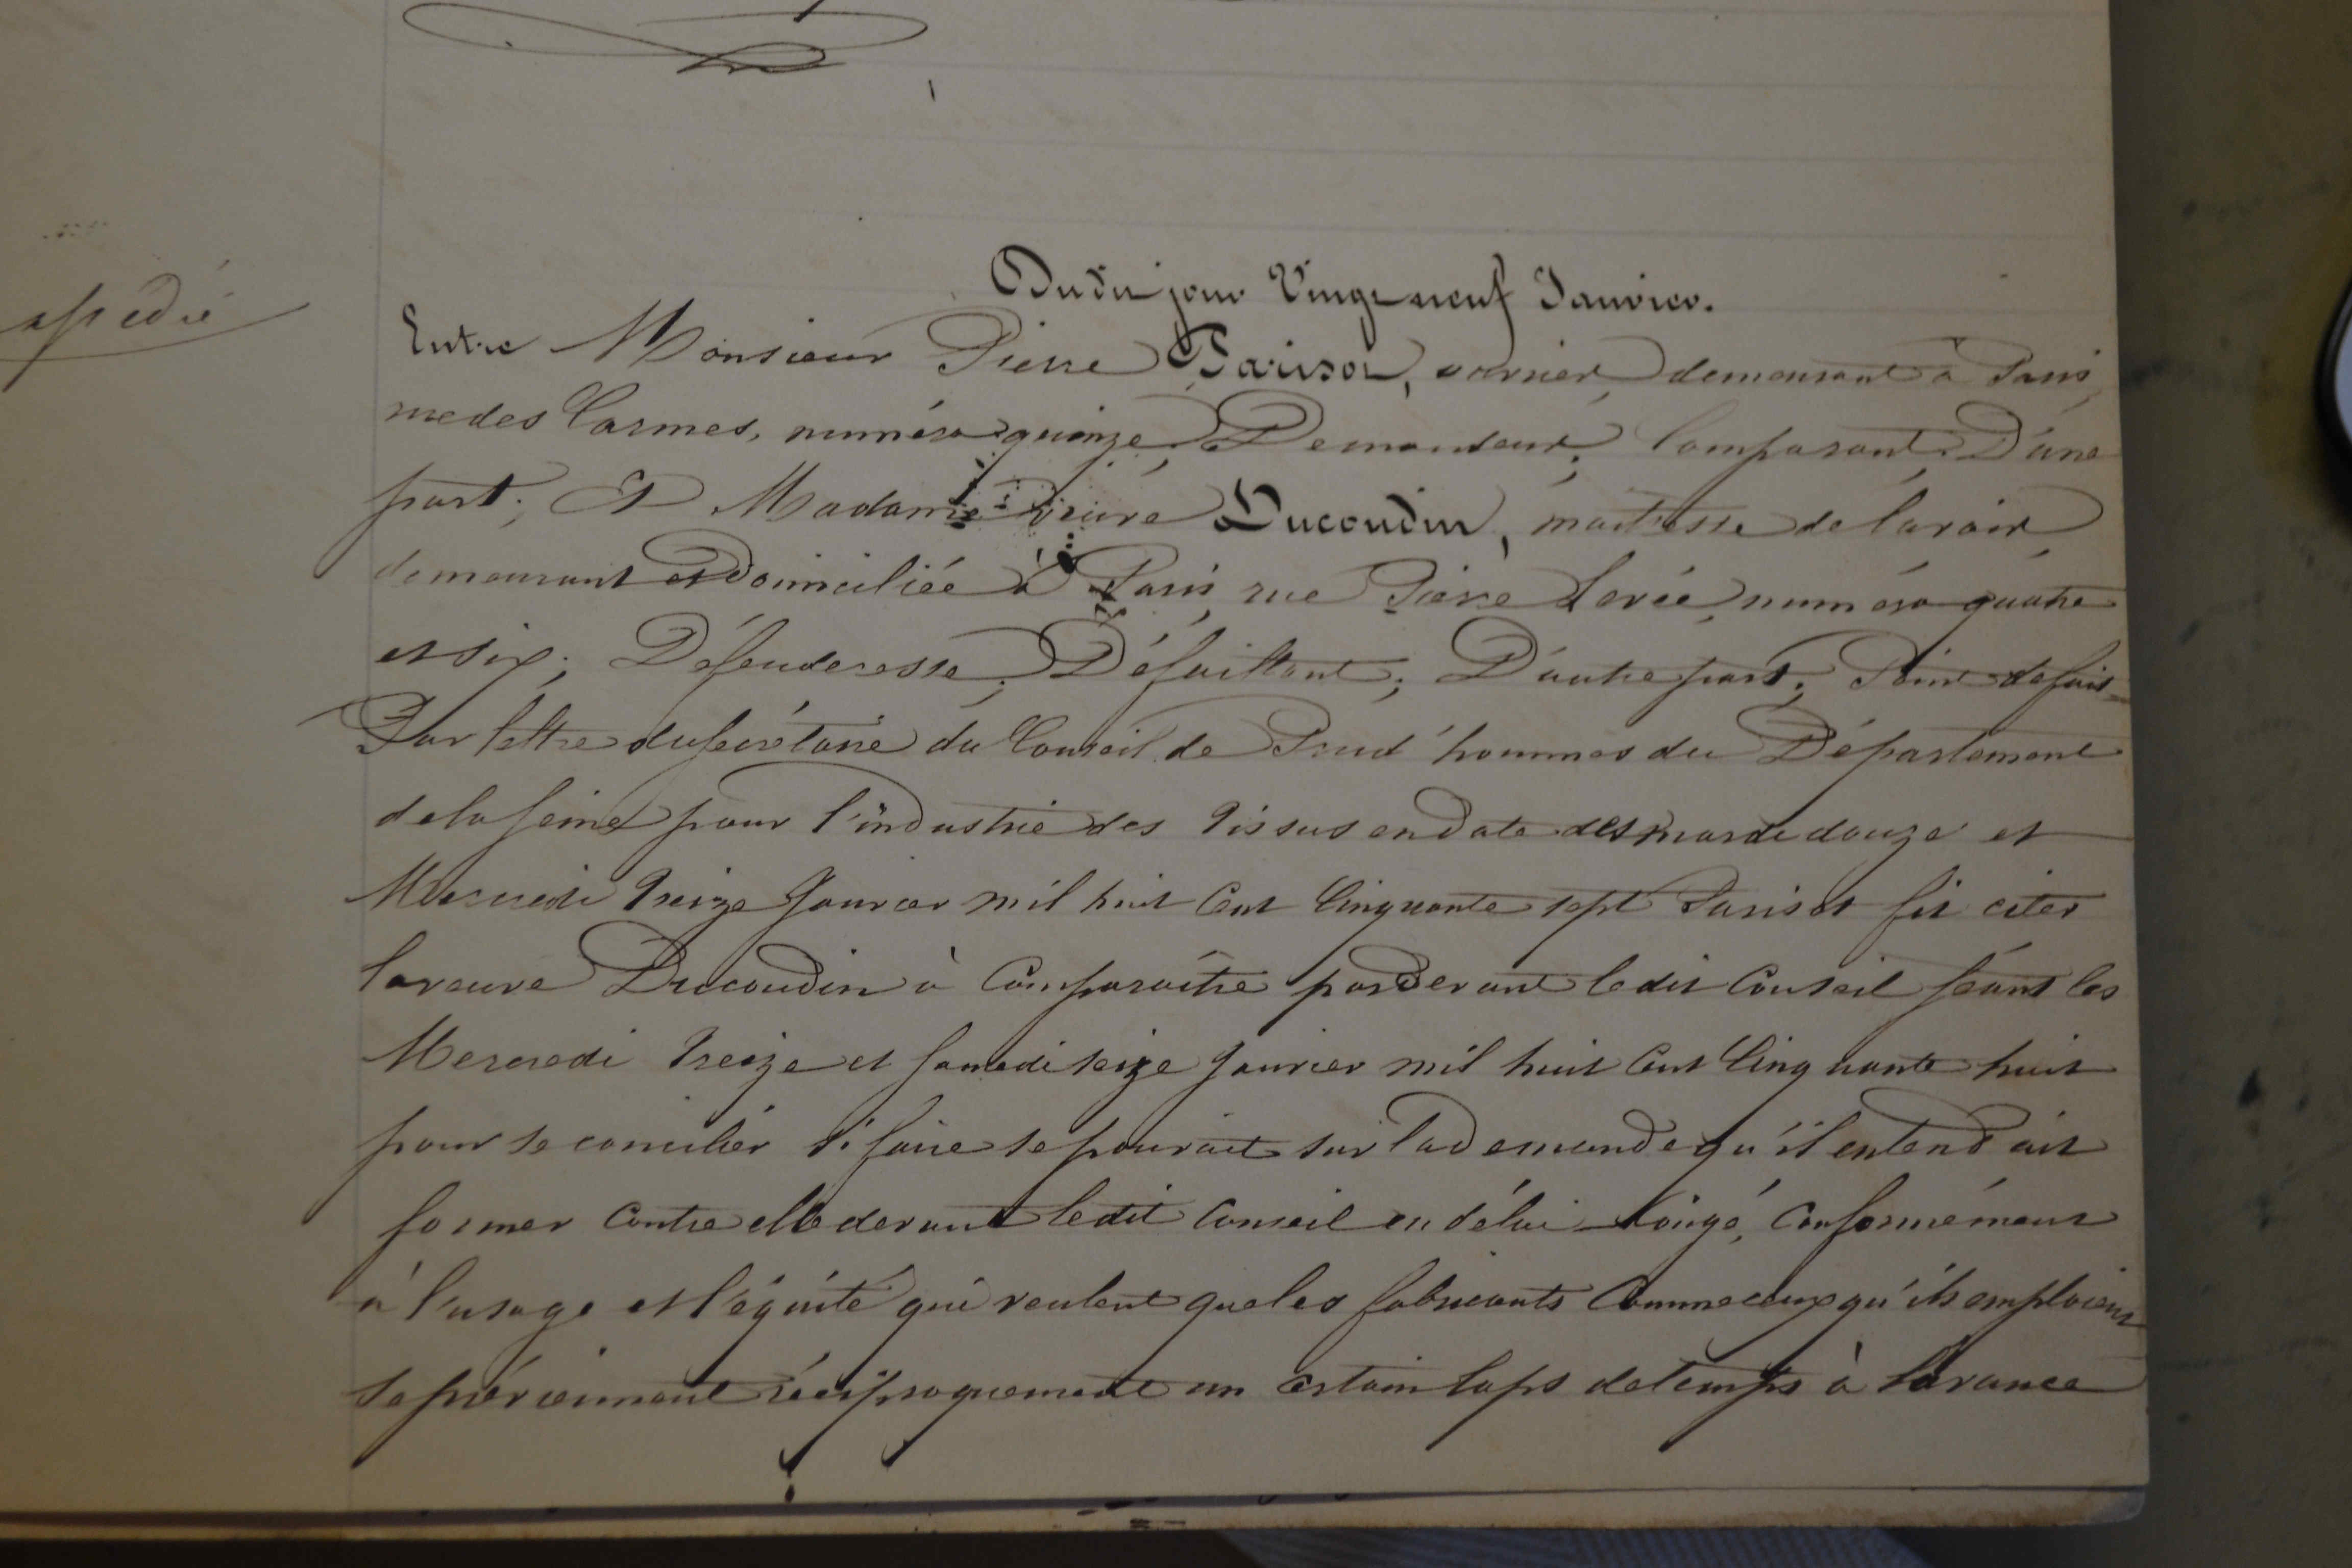 Dudit jour Vingt neuf Janvier.
expédié
Entre Monsieur Pierre Parisot, ouvrier, demeurant à Paris,
rue des Carmes, numéro quinze, Demandeur, Comparant, D'une
part; Et Madame veuve Ducoudin, maîtresse de lavoir,
demeurant et domiciliée à Paris, rue Pierre Levée, numéro quatre
et six; Défenderesse, Défaillant; D'autre part. Point de fait
Par lettre du secrétaire du Conseil de Prud'hommes du Département
de la Seine pour l'industrie des tissus en date des mardi douze et
Mercredi treize Janvier mil huit cent cinquante sept Parisot fit citer
la veuve Ducoudin à Comparaître par devant ledit Conseil séant les
Mercredi treize et samedi seize Janvier mil huit cent cinquante huit
pour se concilier si faire se pouvait sur la demande qu'il entendait
former contre elle devant ledit Conseil en délai congé, conformément
à l'usage et l'équité qui veulent que les fabricants comme ceux qu'ils emploient
se préviennent réciproquement un certain laps de temps à l'avance